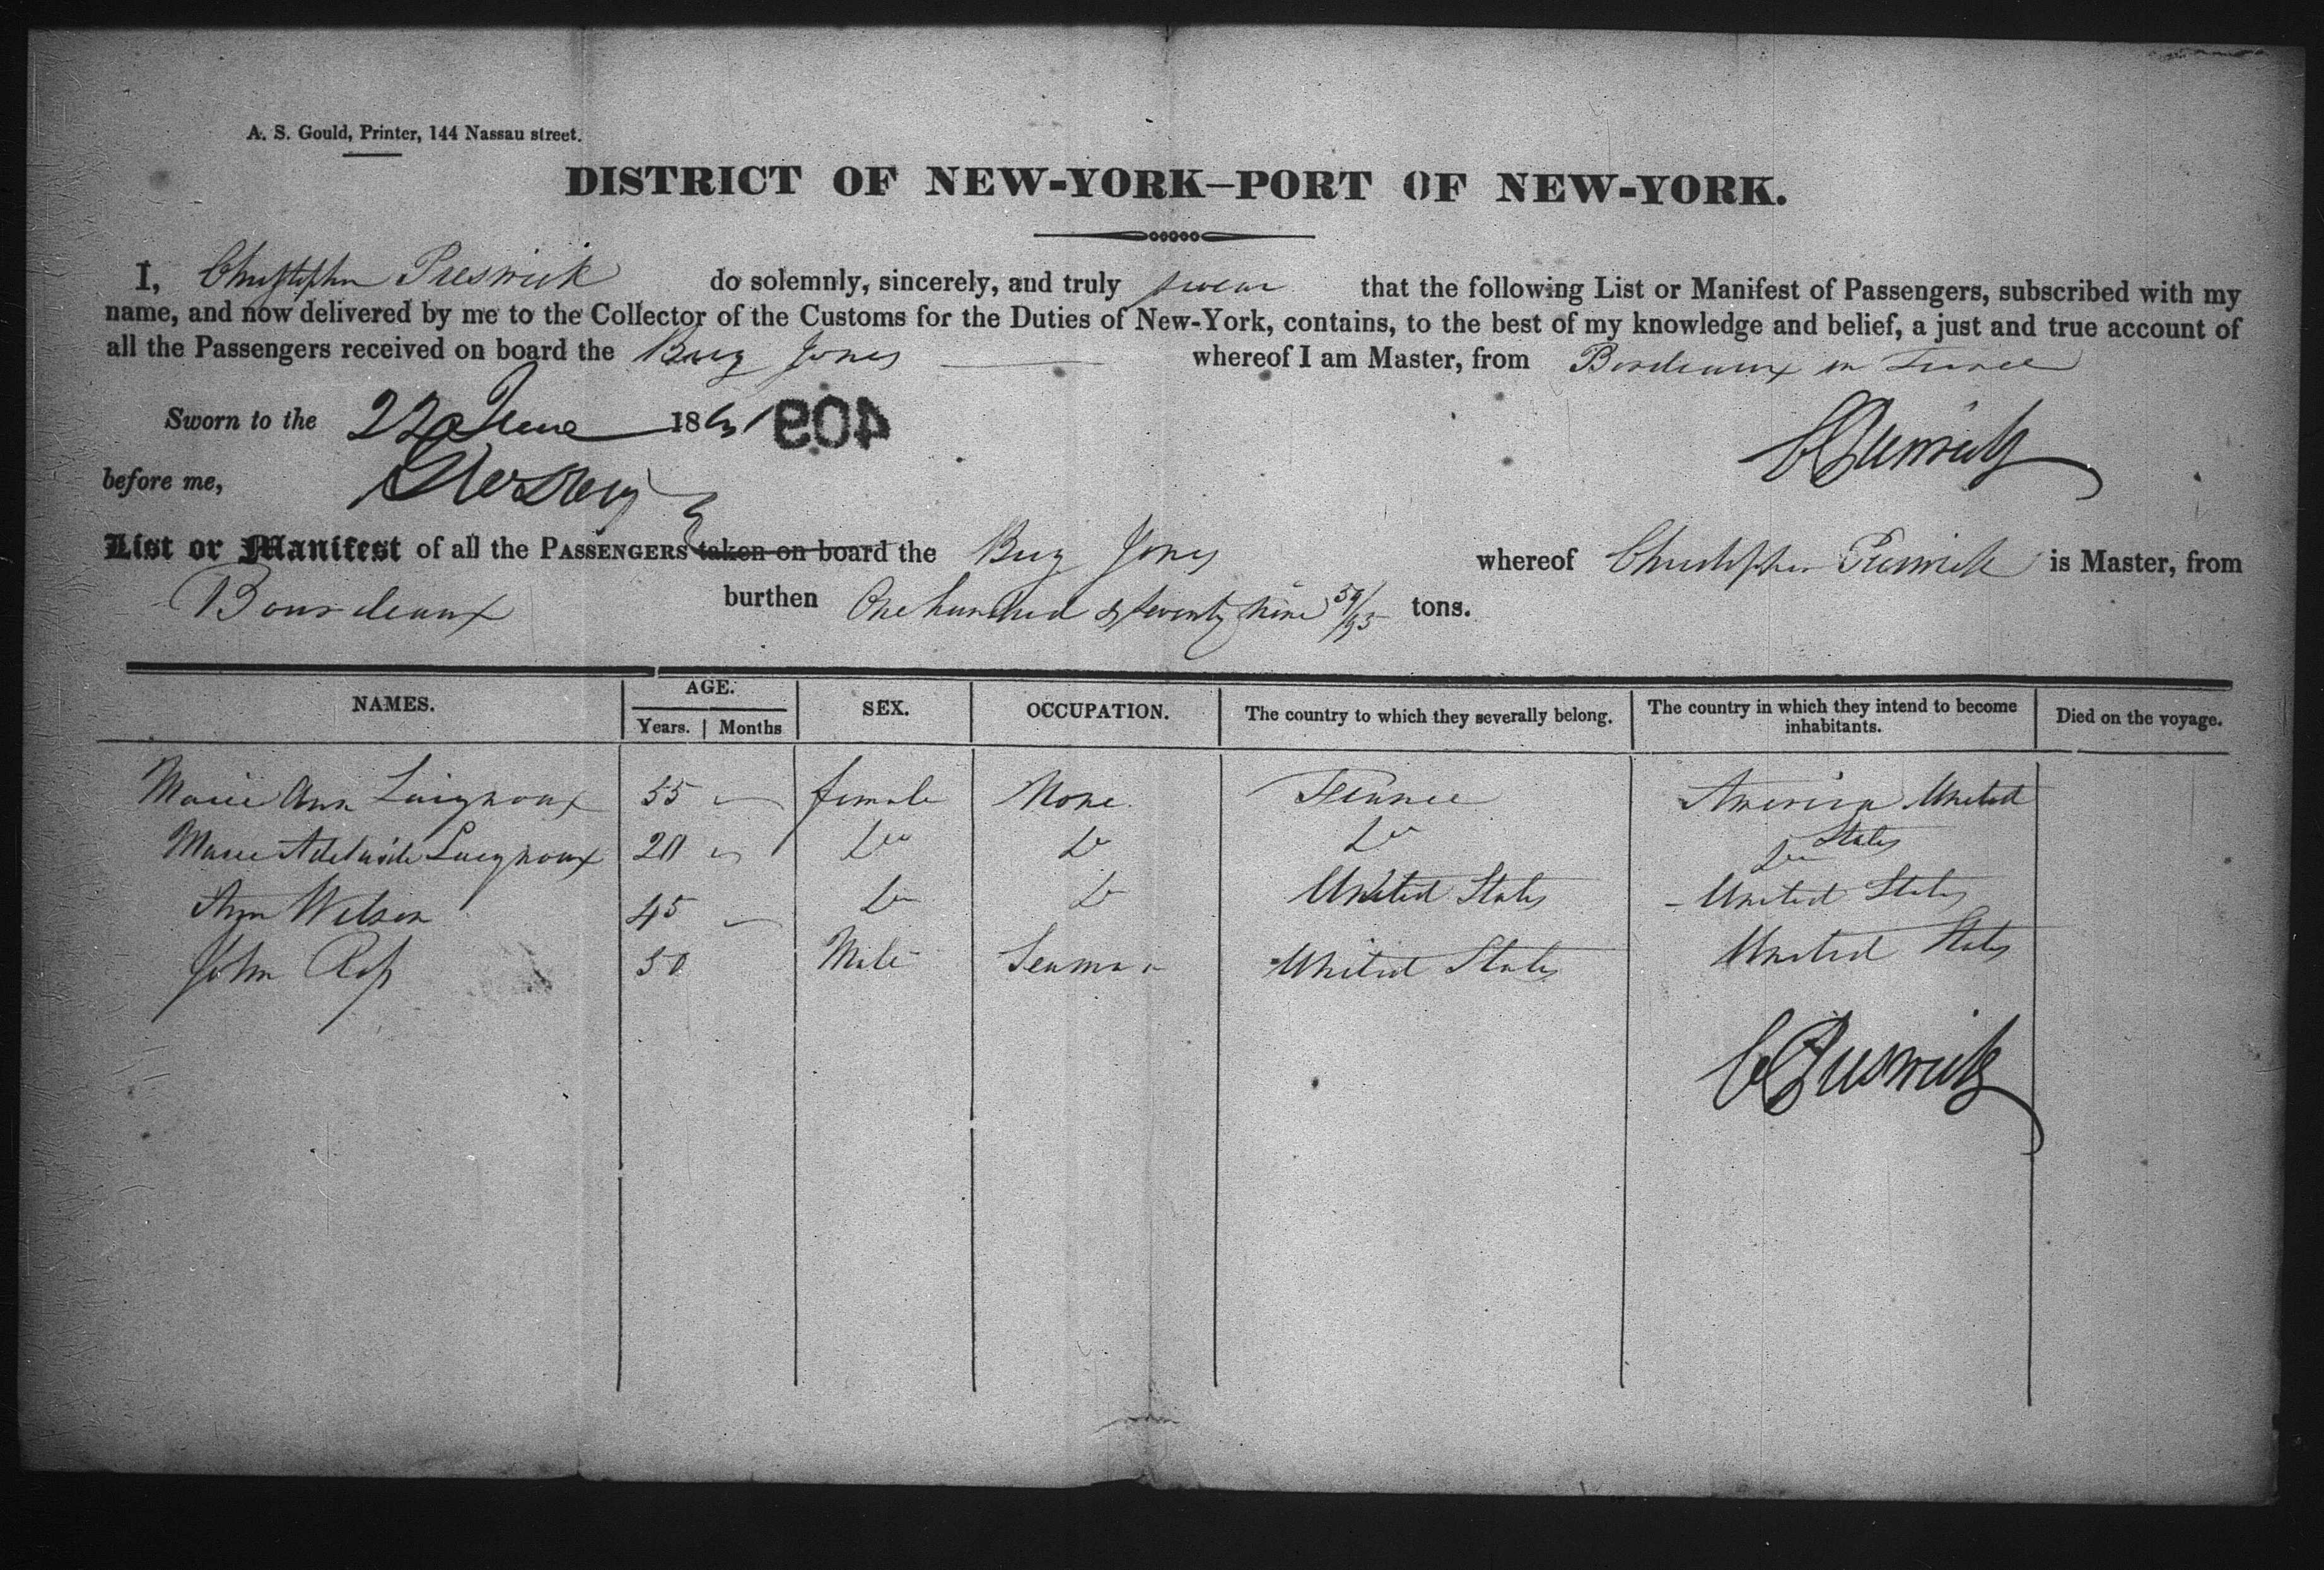 A. S. Gould, Printer, 144 Nassau street.
DISTRICT OF NEW-YORK—PORT OF NEW-YORK.
I, Christopher Preswick do solemnly, sincerely, and truly swear that the following List or Manifest of Passengers, subscribed with my
name, and now delivered by me to the Collector of the Customs for the Duties of New-York, contains, to the best of my knowledge and belief, a just and true account of
all the Passengers received on board the Brig Jones whereof I am Master, from Bordeaux in France
Sworn to the 22 June 1861 409
C Preswick
before me,
List or Manifest of all the PASSENGERS taken on board the Brig Jones whereof Christopher Preswick is Master, from
Bourdeaux burthen One hundred & seventy nine 59/95 tons.
NAMES. AGE. Years. Months SEX. OCCUPATION. The country to which they severally belong. The country in which they intend to become inhabitants. Died on the voyage.
Marie Ann 55 female None France America United States
Marie Adelaide 20 Do Do Do Do
Ann Wilson 45 Do Do United States United States
John 50 Male Seaman United States United States
C Preswick